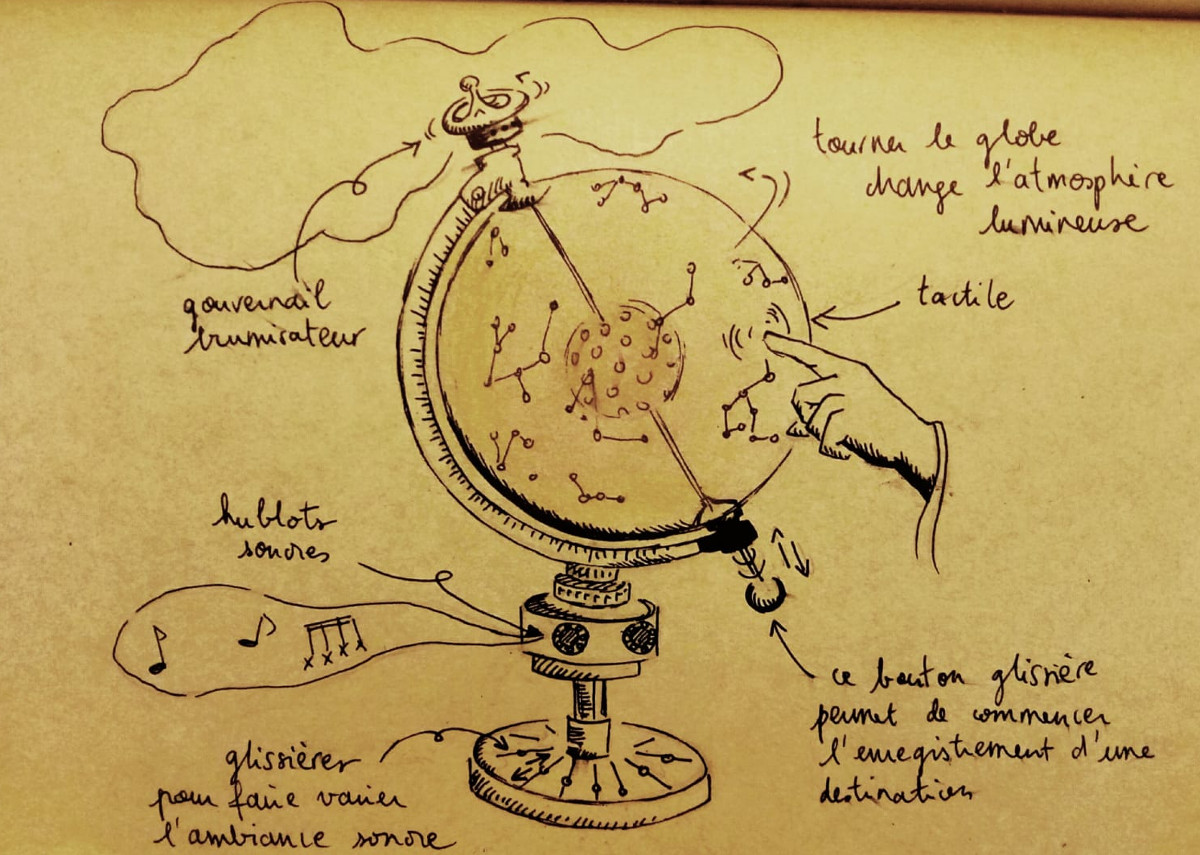 tourner le globe
change l'atmosphère
lumineuse
tactile
gouvernail
brumisateur
hublots
sonores
ce bouton glissière
permet de commencer
l'enregistrement d'une
destination
glissières
pour faire varier
l'ambiance sonore